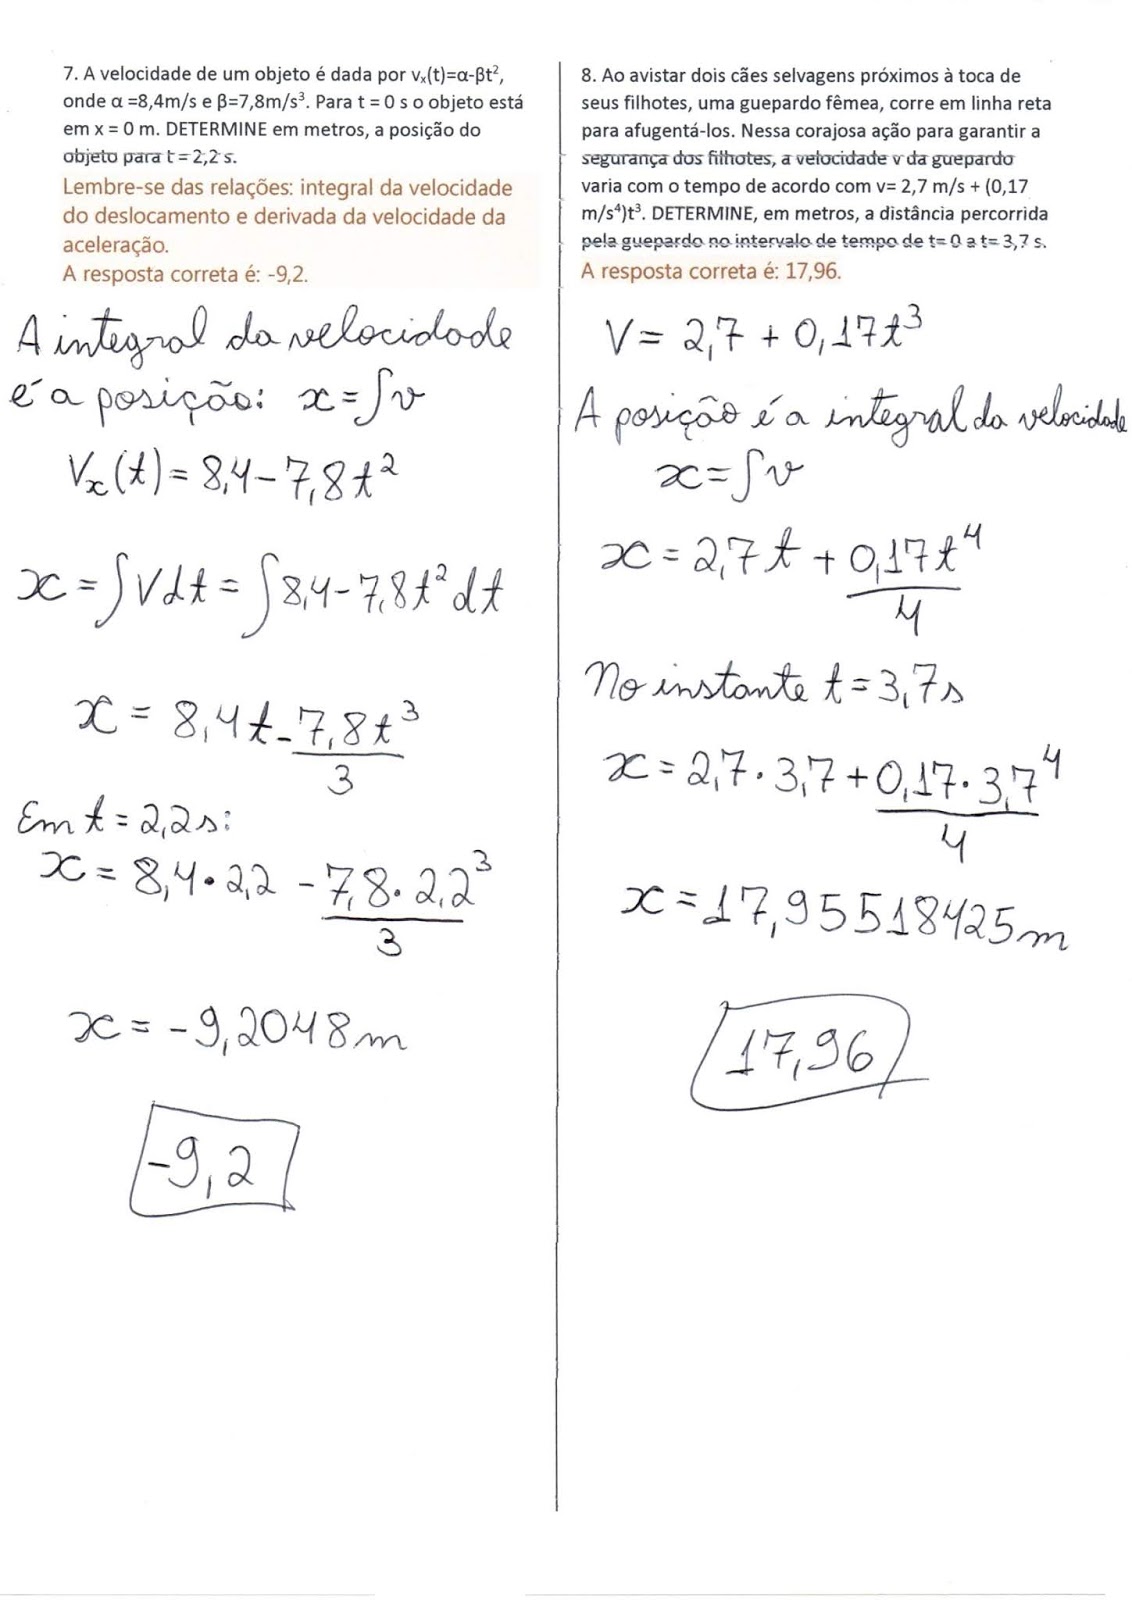 7. A velocidade de um objeto é dada por vₓ(t)=α-βt²,
onde α =8,4m/s e β=7,8m/s³. Para t = 0 s o objeto está
em x = 0 m. DETERMINE em metros, a posição do
objeto para t = 2,2 s.
Lembre-se das relações: integral da velocidade
do deslocamento e derivada da velocidade da
aceleração.
A resposta correta é: -9,2.
A integral da velocidade
é a posição: x=∫v
Vₓ(t)= 8,4-7,8t²
x=∫Vdt=∫8,4-7,8t²dt
x = 8,4t-7,8t³
3
Em t = 2,2s:
x= 8,4•2,2 -7,8•2,2³
3
x= -9,2048m
-9,2
8. Ao avistar dois cães selvagens próximos à toca de
seus filhotes, uma guepardo fêmea, corre em linha reta
para afugentá-los. Nessa corajosa ação para garantir a
segurança dos filhotes, a velocidade v da guepardo
varia com o tempo de acordo com v= 2,7 m/s + (0,17
m/s⁴)t³. DETERMINE, em metros, a distância percorrida
pela guepardo no intervalo de tempo de t= 0 a t= 3,7 s.
A resposta correta é: 17,96.
V= 2,7 + 0,17t³
A posição é a integral da velocidade
x=∫v
x=2,7t+0,17t⁴
4
No instante t=3,7s
x=2,7•3,7+0,17•3,7⁴
4
x=17,95518425m
17,96